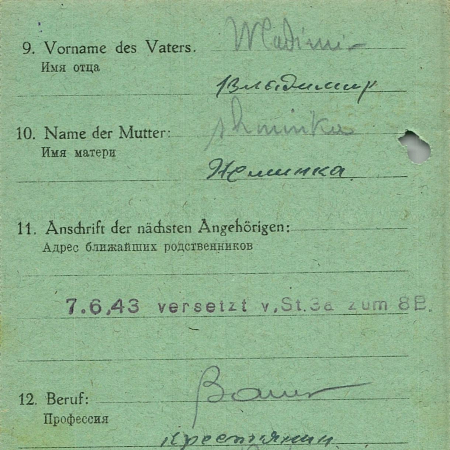 9. Vorname des Vaters. Wladimir
Имя отца
Владимир
10. Name der Mutter:
Имя матери
11. Anschrift der nächsten Angehörigen:
Адрес ближайших родственников
7.6,43 versetzt v,St.3a zum 8B.
12. Beruf: Bauer
Профессия
Крестьянин